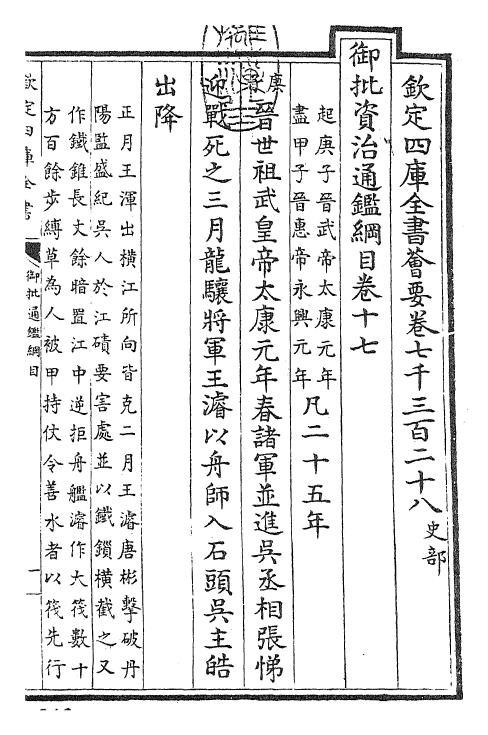 欽定四庫全書薈要卷七千三百二十八史部
御批資治通鑑綱目卷十七
起庚子晉武帝太康元年
盡甲子晉惠帝永興元年
凡二十五年
庚子
晉世祖武皇帝太康元年春諸軍並進吳丞相張悌
迎戰死之三月龍驤將軍王濬以舟師入石頭吳主皓
出降
正月王渾出橫江所向皆克二月王濬唐彬擊破丹
陽監盛紀吳人於江磧要害處並以鐵鎖橫截之又
作鐵錐長丈餘暗置江中逆拒舟艦濬作大筏數十
方百餘步縛草為人被甲持仗令善水者以筏先行
欽定四庫全書
御批通鑑綱目
一